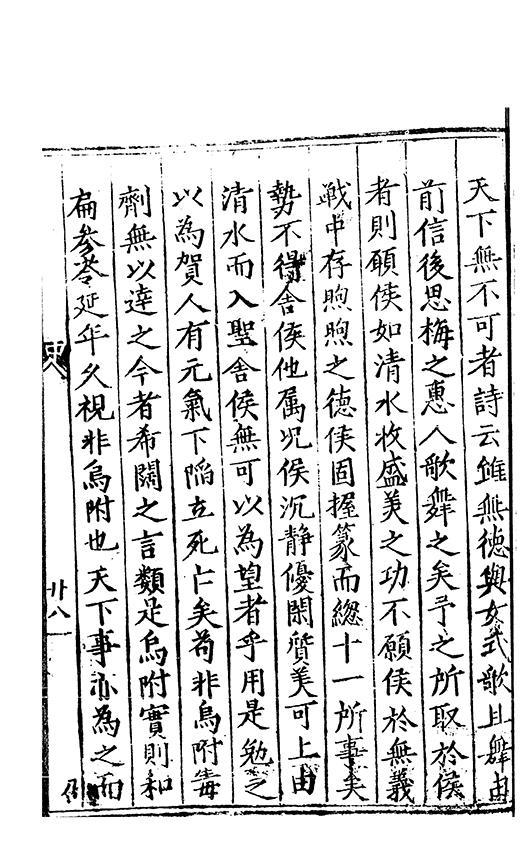 天下無不可者詩云雖無德與女式歌且舞由
前信後思梅之惠人歌舞之矣予之所取於侯
者則願侯如清水收盛美之功不願侯於無義
戰中存煦煦之德侯固握篆而緫十一所事矣
勢不得舍侯他属況侯沉静優閑質美可上由
清水而入聖舍侯無可以為望者乎用是勉之
以為賀人有元氣下陷立死亡矣苟非烏附毒
劑無以逹之今者希闊之言類是烏附實則和
扁参苓延年久視非烏附也天下事亦為之而
廿八